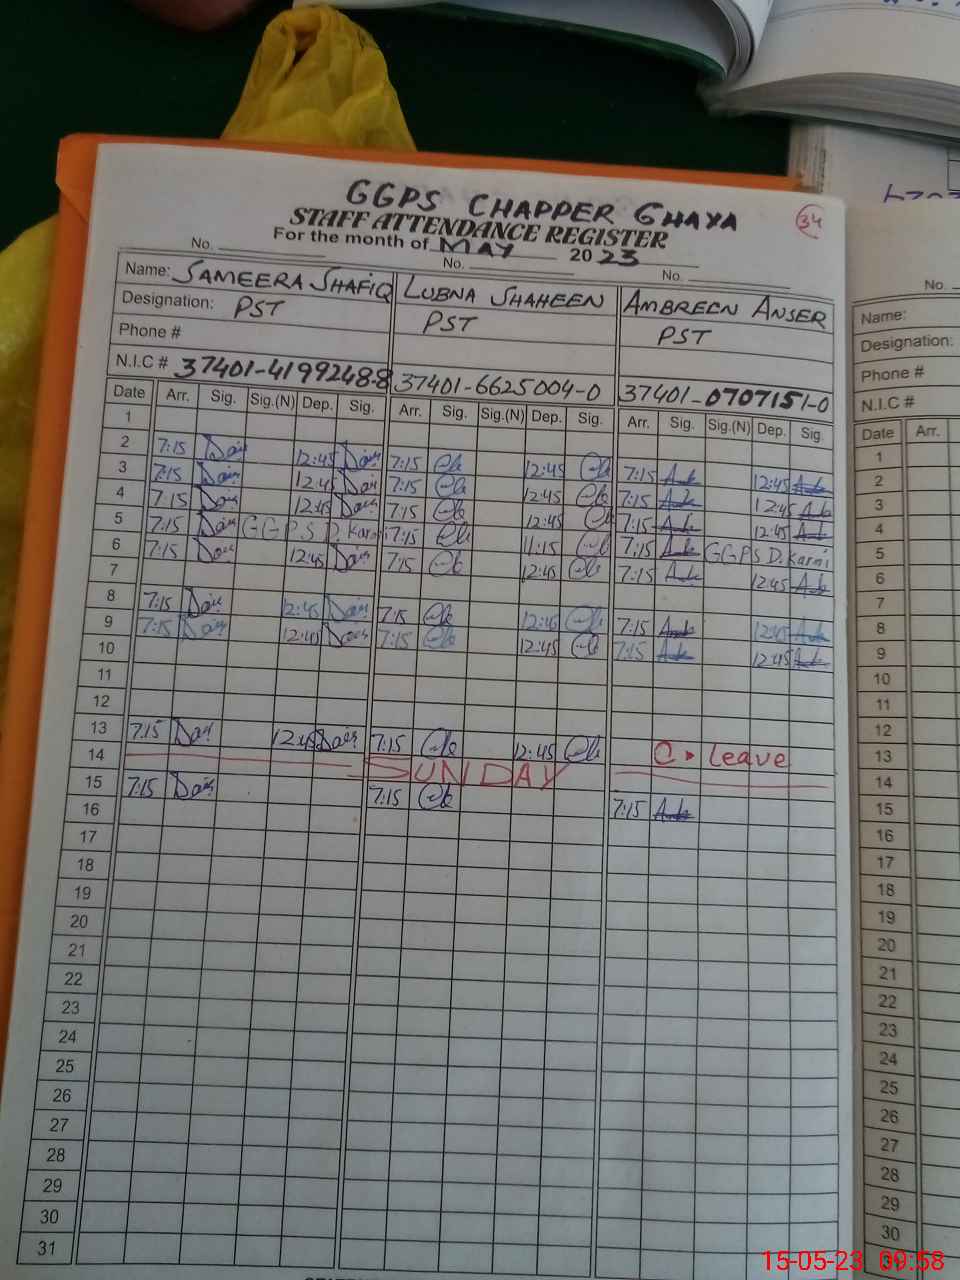 GGPS CHAPPER GHAYA
34
STAFF ATTENDANCE REGISTER
For the month of MAY 2023
No. No. No.
Name: SAMEERA SHAFIQ LUBNA SHAHEEN AMBREEN ANSER
Designation: PST PST PST
Phone #
N.I.C # 37401-4199248-8 37401-6625004-0 37401-0707151-0
Date Arr. Sig. Sig.(N) Dep. Sig. Arr. Sig. Sig.(N) Dep. Sig. Arr. Sig. Sig.(N) Dep. Sig.
1
2 7:15 12:45 7:15 12:45 7:15 12:45
3 7:15 12:45 7:15 12:45 7:15 12:45
4 7:15 12:45 7:15 12:45 7:15 12:45
5 7:15 GGPS D. Karni 7:15 11:15 7:15 GGPS D. Karni
6 7:15 12:45 7:15 12:45 7:15 12:45
7
8 7:15 12:45 7:15 12:45 7:15 12:45
9 7:15 12:45 7:15 12:45 7:15 12:45
10
11
12
13 7:15 12:45 7:15 12:45 C. Leave
14 SUNDAY
15 7:15 7:15 7:15
16
17
18
19
20
21
22
23
24
25
26
27
28
29
30
31
No.
Name:
Designation:
Phone #
N.I.C #
Date Arr.
1
2
3
4
5
6
7
8
9
10
11
12
13
14
15
16
17
18
19
20
21
22
23
24
25
26
27
28
29
30
15-05-23 09:58